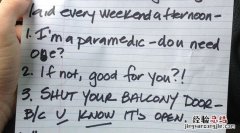 laid every weekend afternoon-
1. I'm a paramedic - do u need
one?
2. If not, good for you?!
3. SHUT YOUR BALCONY DOOR-
B/C U KNOW IT'S OPEN.
经验总结